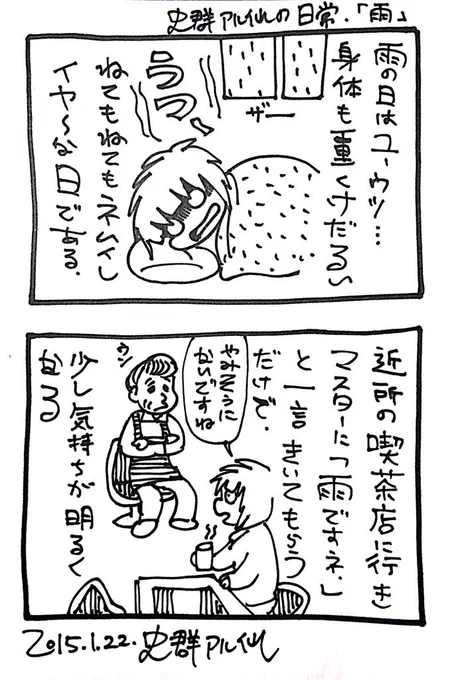 史群アル仙の日常.「雨」
雨の日はユーウツ…
身体も重くけだるい
ザー
うつ、
ねてもねてもネムイし
イヤ〜な日である.
近所の喫茶店に行き
マスターに「雨ですネ.」
と一言きいてもらう
だけで、
やみそうに
ないですね
ウン
少し気持ちが明るく
なる
2015.1.22.史群アル仙